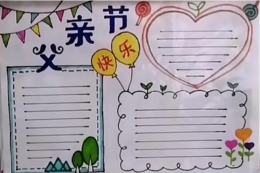 父亲节
快乐